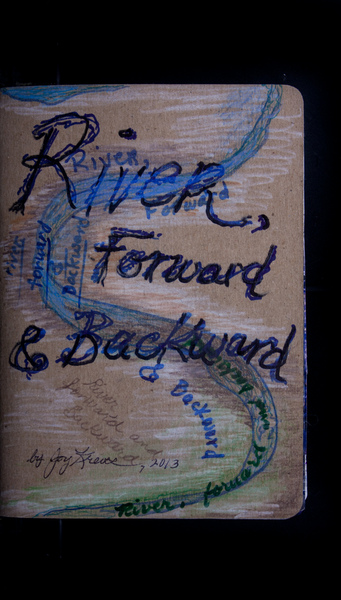 River,
River,
Forward
River
forward
&
Backward
Forward
& Backward
& Backward
River
forward and
Backward
by Joy
, 2013
River, forward
and backward